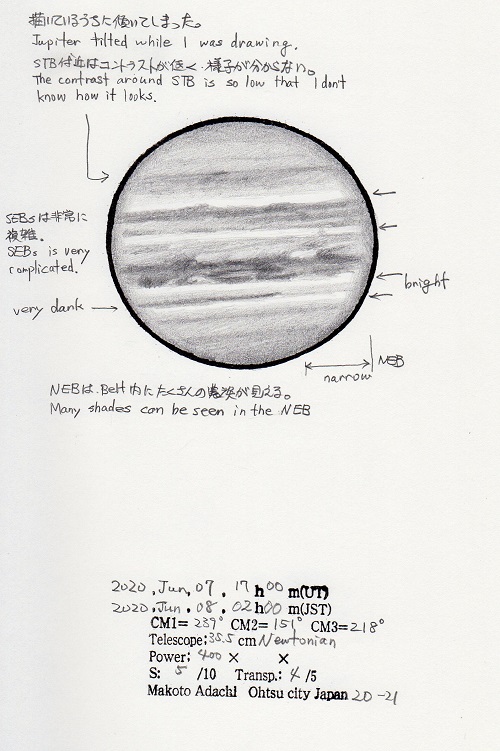 描いているうちに傾いてしまった。
Jupiter tilted while I was drawing.
STB付近はコントラストが低く様子が分からない。
The contrast around STB is so low that I don't
know how it looks.
SEBsは非常に
複雑。
SEBs is very
complicated.
bright
very dark
NEB
narrow
NEBは、Belt内にたくさんの 見える。
Many shades can be seen in the NEB
2020, Jun, 07, 17h00m(UT)
2020, Jun. 08, 02h00m(JST)
CM1=239° CM2=151° CM3=218°
Telescope: 35.5 cm Newtonian
Power; 400 × ×
S: 5 /10 Transp.: 4 /5
Makoto Adachi Ohtsu city Japan 20-21